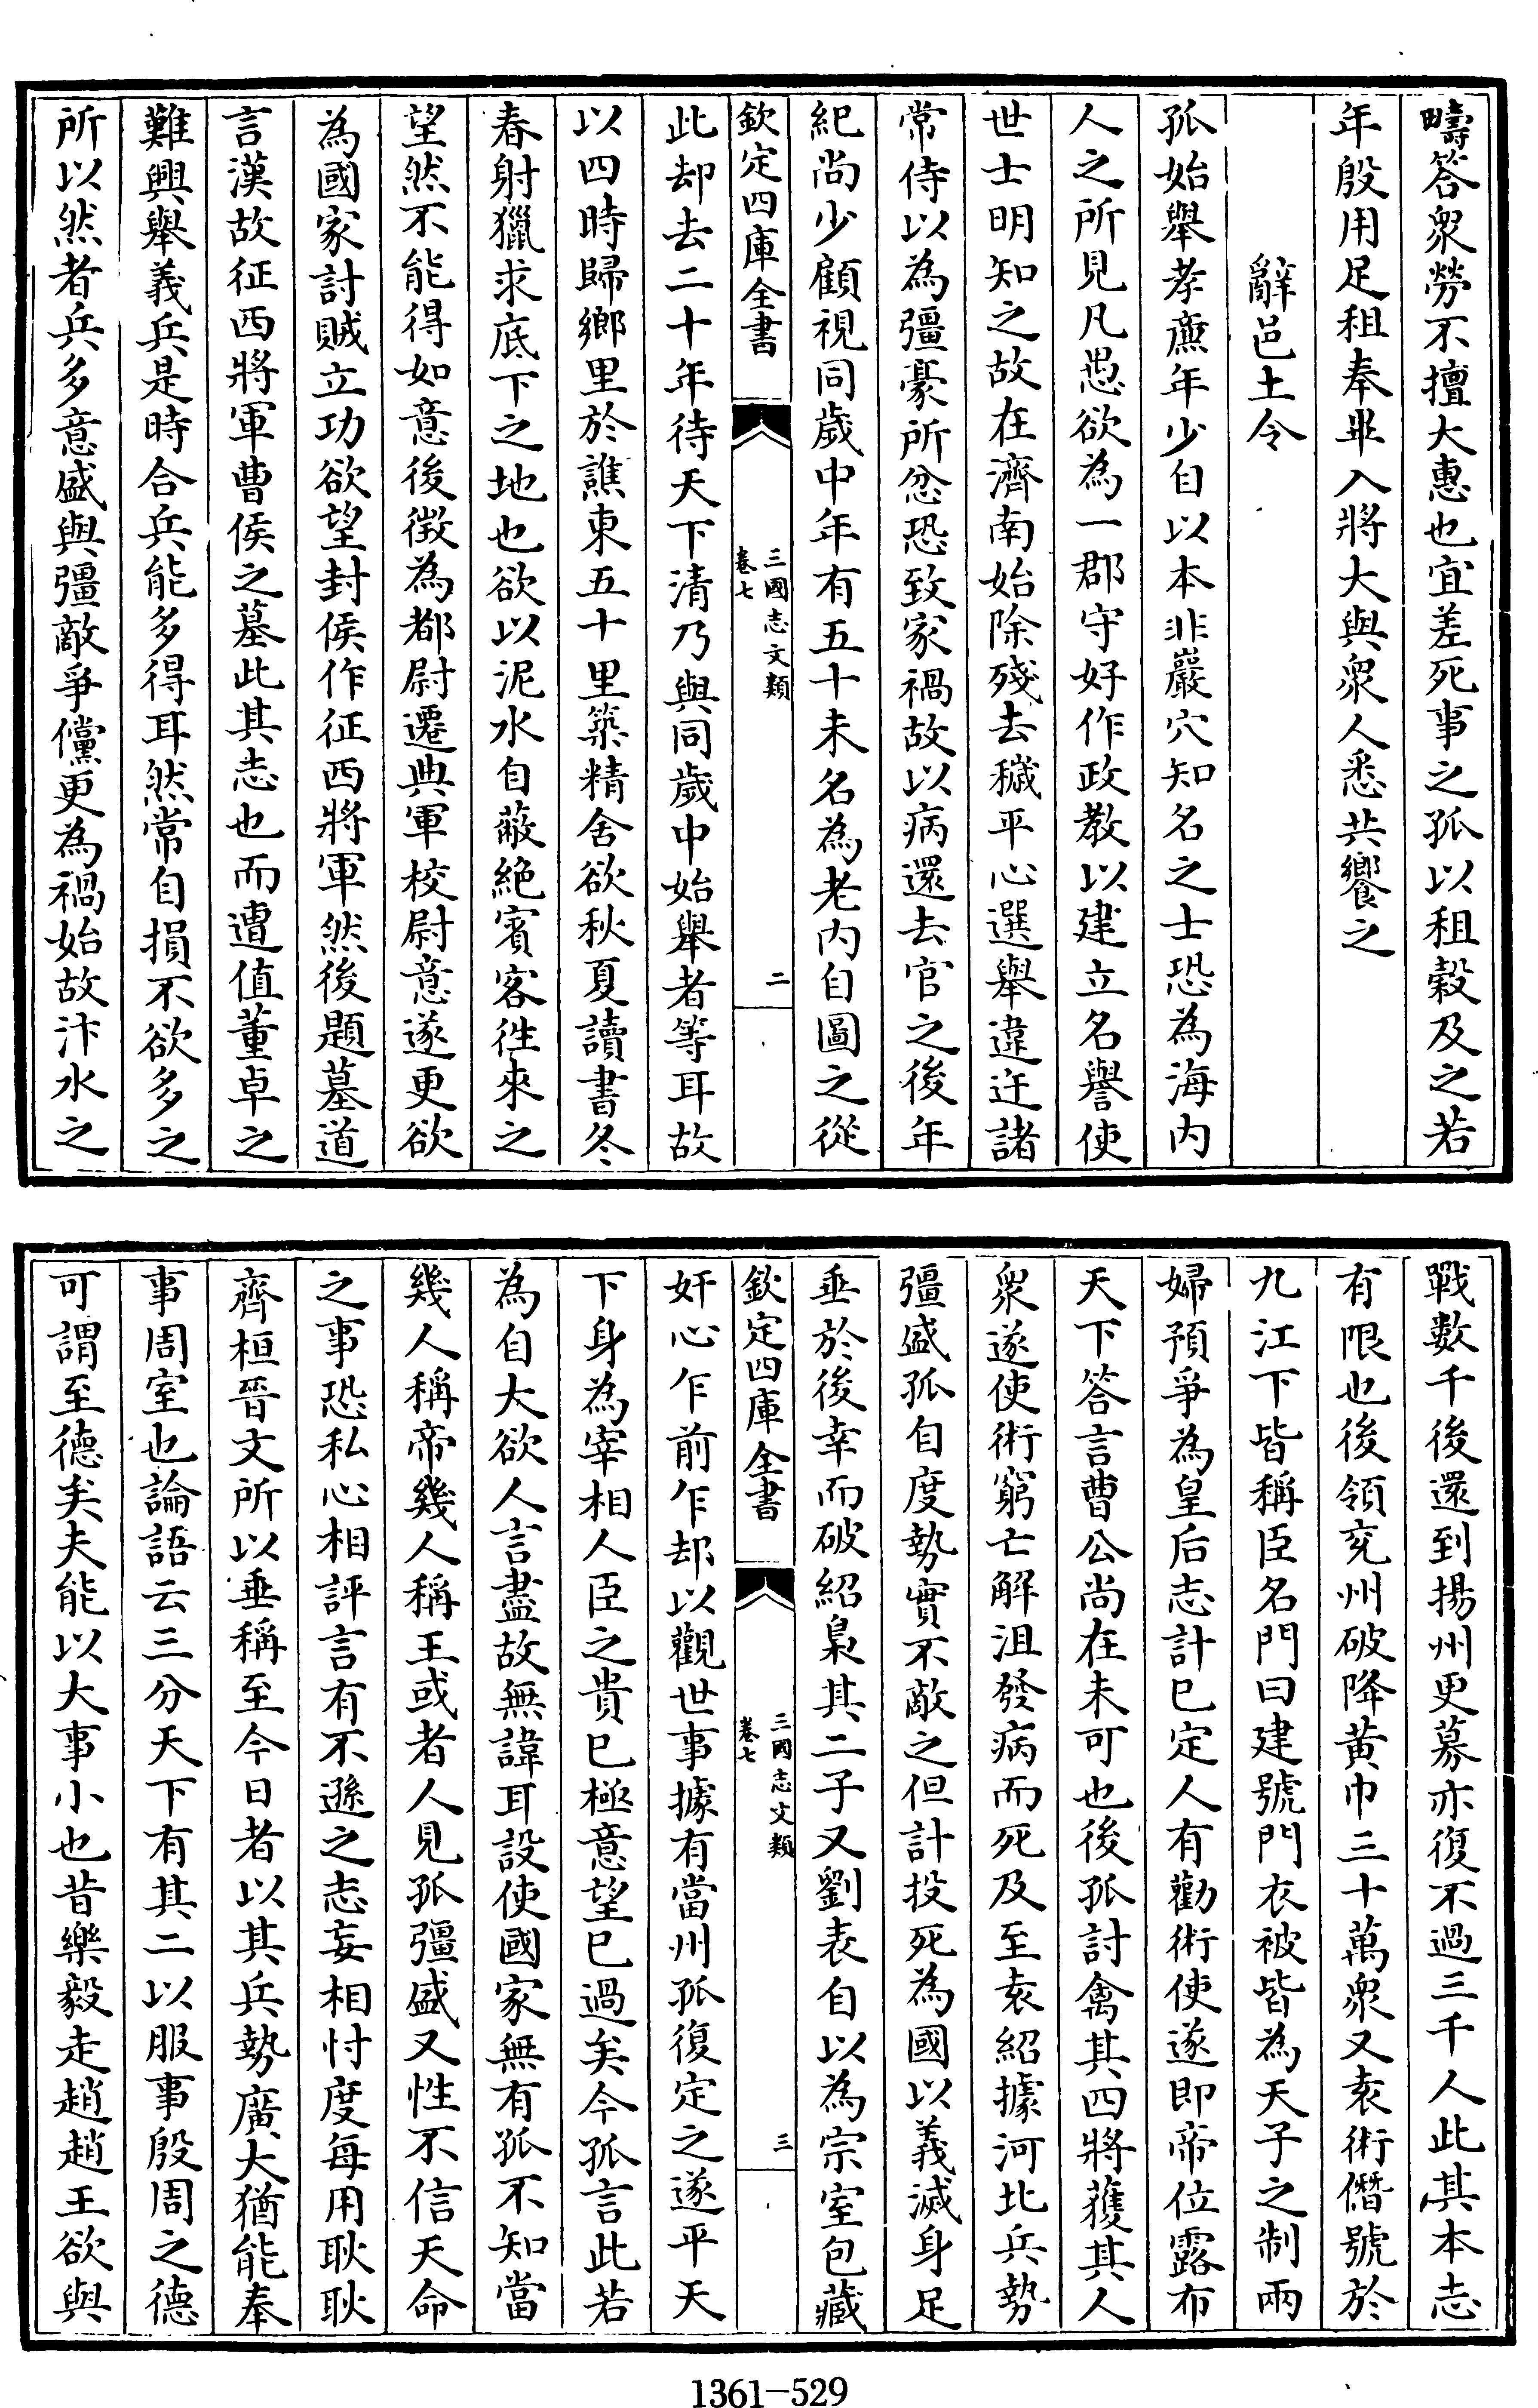 疇答衆勞不擅大惠也宜差死事之孤以租穀及之若
年殷用足租奉畢入將大與衆人悉共饗之
辭邑土令
孤始舉孝廉年少自以本非巖穴知名之士恐為海内
人之所見凡愚欲為一郡守好作政教以建立名譽使
世士明知之故在濟南始除殘去穢平心選舉違迕諸
常侍以為彊豪所忿恐致家禍故以病還去官之後年
紀尚少顧視同歲中年有五十未名為老内自圖之從
欽定四庫全書
三國志文類
卷七
二
此却去二十年待天下清乃與同歲中始舉者等耳故
以四時歸鄉里於譙東五十里築精舍欲秋夏讀書冬
春射獵求底下之地也欲以泥水自蔽絶賓客徃來之
望然不能得如意後徴為都尉遷典軍校尉意遂更欲
為國家討賊立功欲望封侯作征西將軍然後題墓道
言漢故征西將軍曹侯之墓此其志也而遭值董卓之
難興舉義兵是時合兵能多得耳然常自損不欲多之
所以然者兵多意盛與彊敵爭儻更為禍始故汴水之
戰數千後還到揚州更募亦復不過三千人此其本志
有限也後領兖州破降黄巾三十萬衆又袁術僭號於
九江下皆稱臣名門曰建號門衣被皆為天子之制兩
婦預爭為皇后志計已定人有勸術使遂即帝位露布
天下答言曹公尚在未可也後孤討禽其四將獲其人
衆遂使術窮亡解沮發病而死及至袁紹據河北兵勢
彊盛孤自度勢實不敵之但計投死為國以義滅身足
垂於後幸而破紹梟其二子又劉表自以為宗室包藏
欽定四庫全書
三國志文類
卷七
三
奸心乍前乍却以觀世事據有當州孤復定之遂平天
下身為宰相人臣之貴已極意望已過矣今孤言此若
為自大欲人言盡故無諱耳設使國家無有孤不知當
幾人稱帝幾人稱王或者人見孤彊盛又性不信天命
之事恐私心相評言有不遜之志妄相忖度每用耿耿
齊桓晉文所以垂稱至今日者以其兵勢廣大猶能奉
事周室也論語云三分天下有其二以服事殷周之德
可謂至德矣夫能以大事小也昔樂毅走趙趙王欲與
1361-529